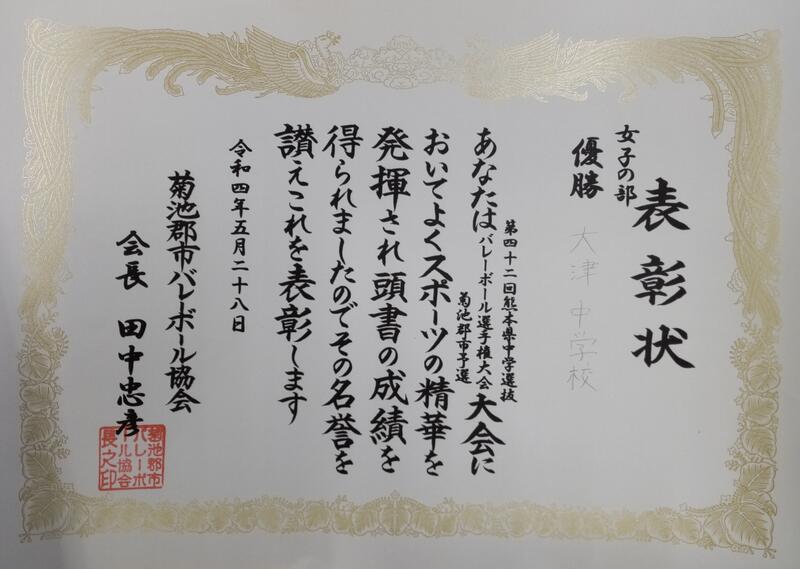 表彰状
女子の部
優勝
大津中学校
あなたは第四十二回熊本県中学選抜
バレーボール選手権大会
菊池郡市予選
大会に
おいてよくスポーツの精華を
発揮され頭書の成績を
得られましたのでその名誉を
讃えこれを表彰します
令和四年五月二十八日
菊池郡市バレーボール協会
会長 田中忠彦
菊池郡市
バレーボ
ール協会
長之印